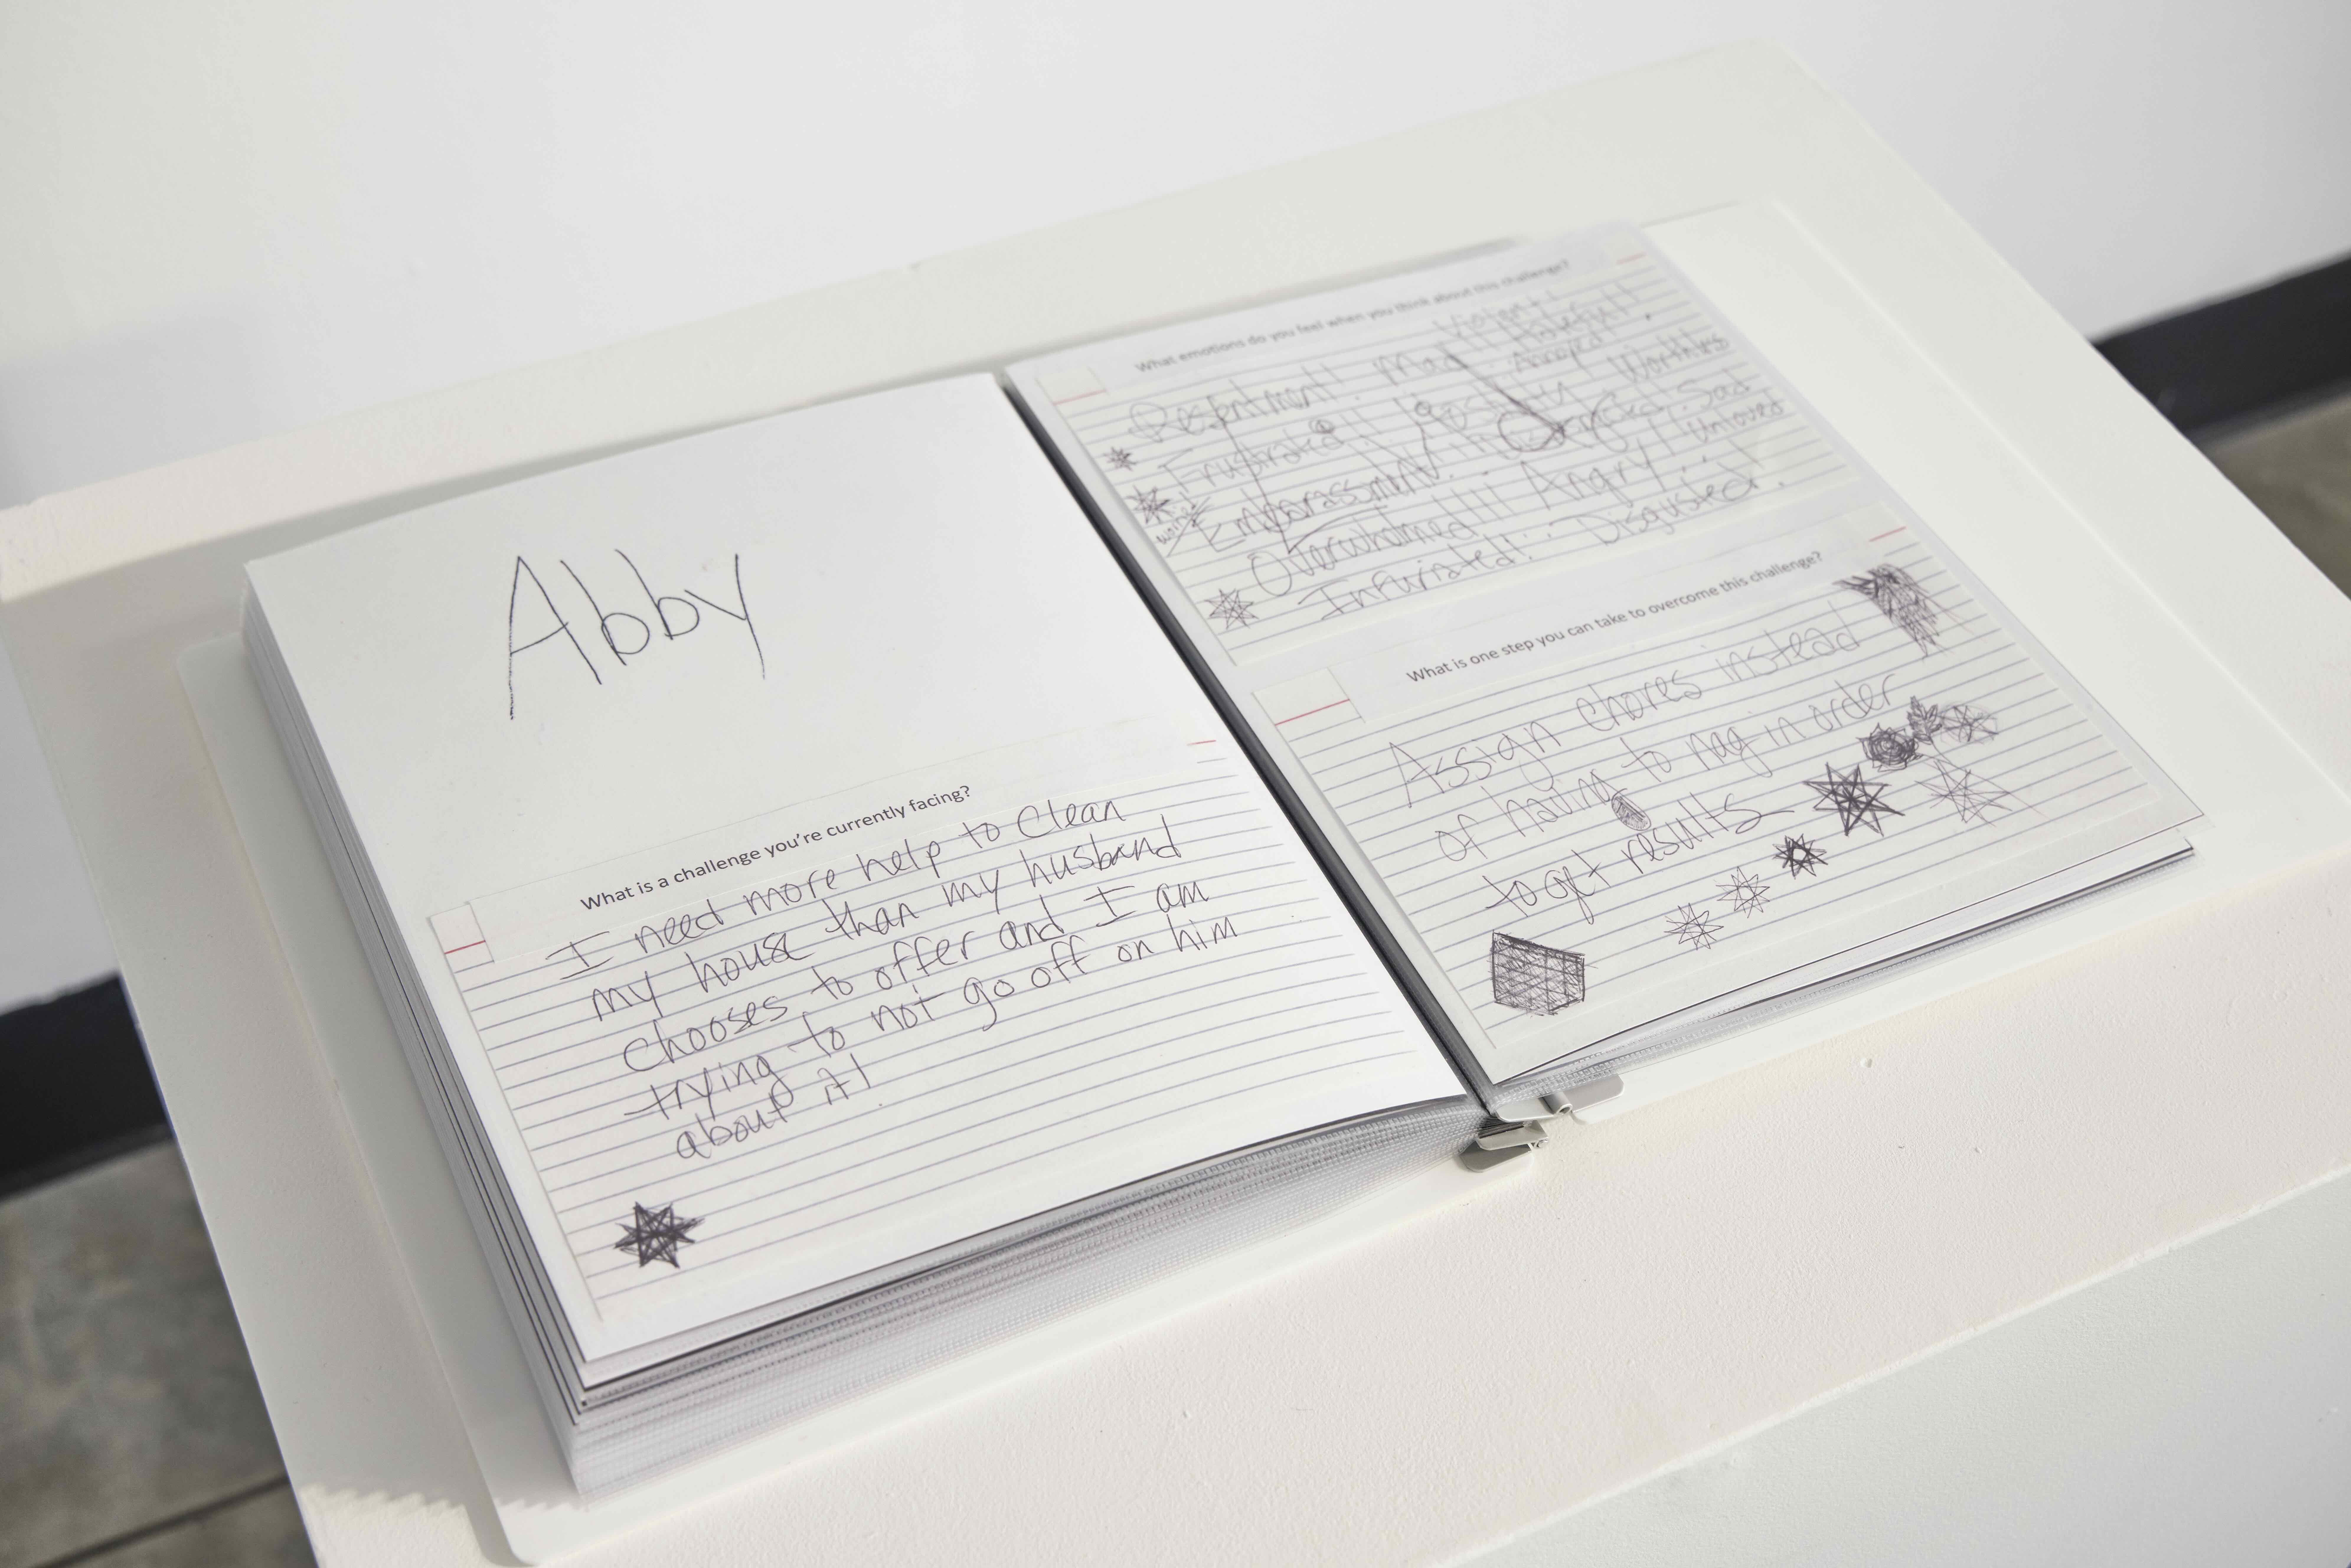 Abby
What is a challenge you're currently facing?
I need more help to clean
my house than my husband
chooses to offer and I am
trying to not go off on him
about it!
What emotions do you feel when you think about this challenge?
Resentment! Mad!! Violent!
Hateful!!
Frustrated!! Annoyed!
Worthless
Embarassment. Sad
Overwhelmed!!! Angry! Unloved
Infuriated!. Disgusted!.
What is one step you can take to overcome this challenge?
Assign chores instead
of having to nag in order
to get results